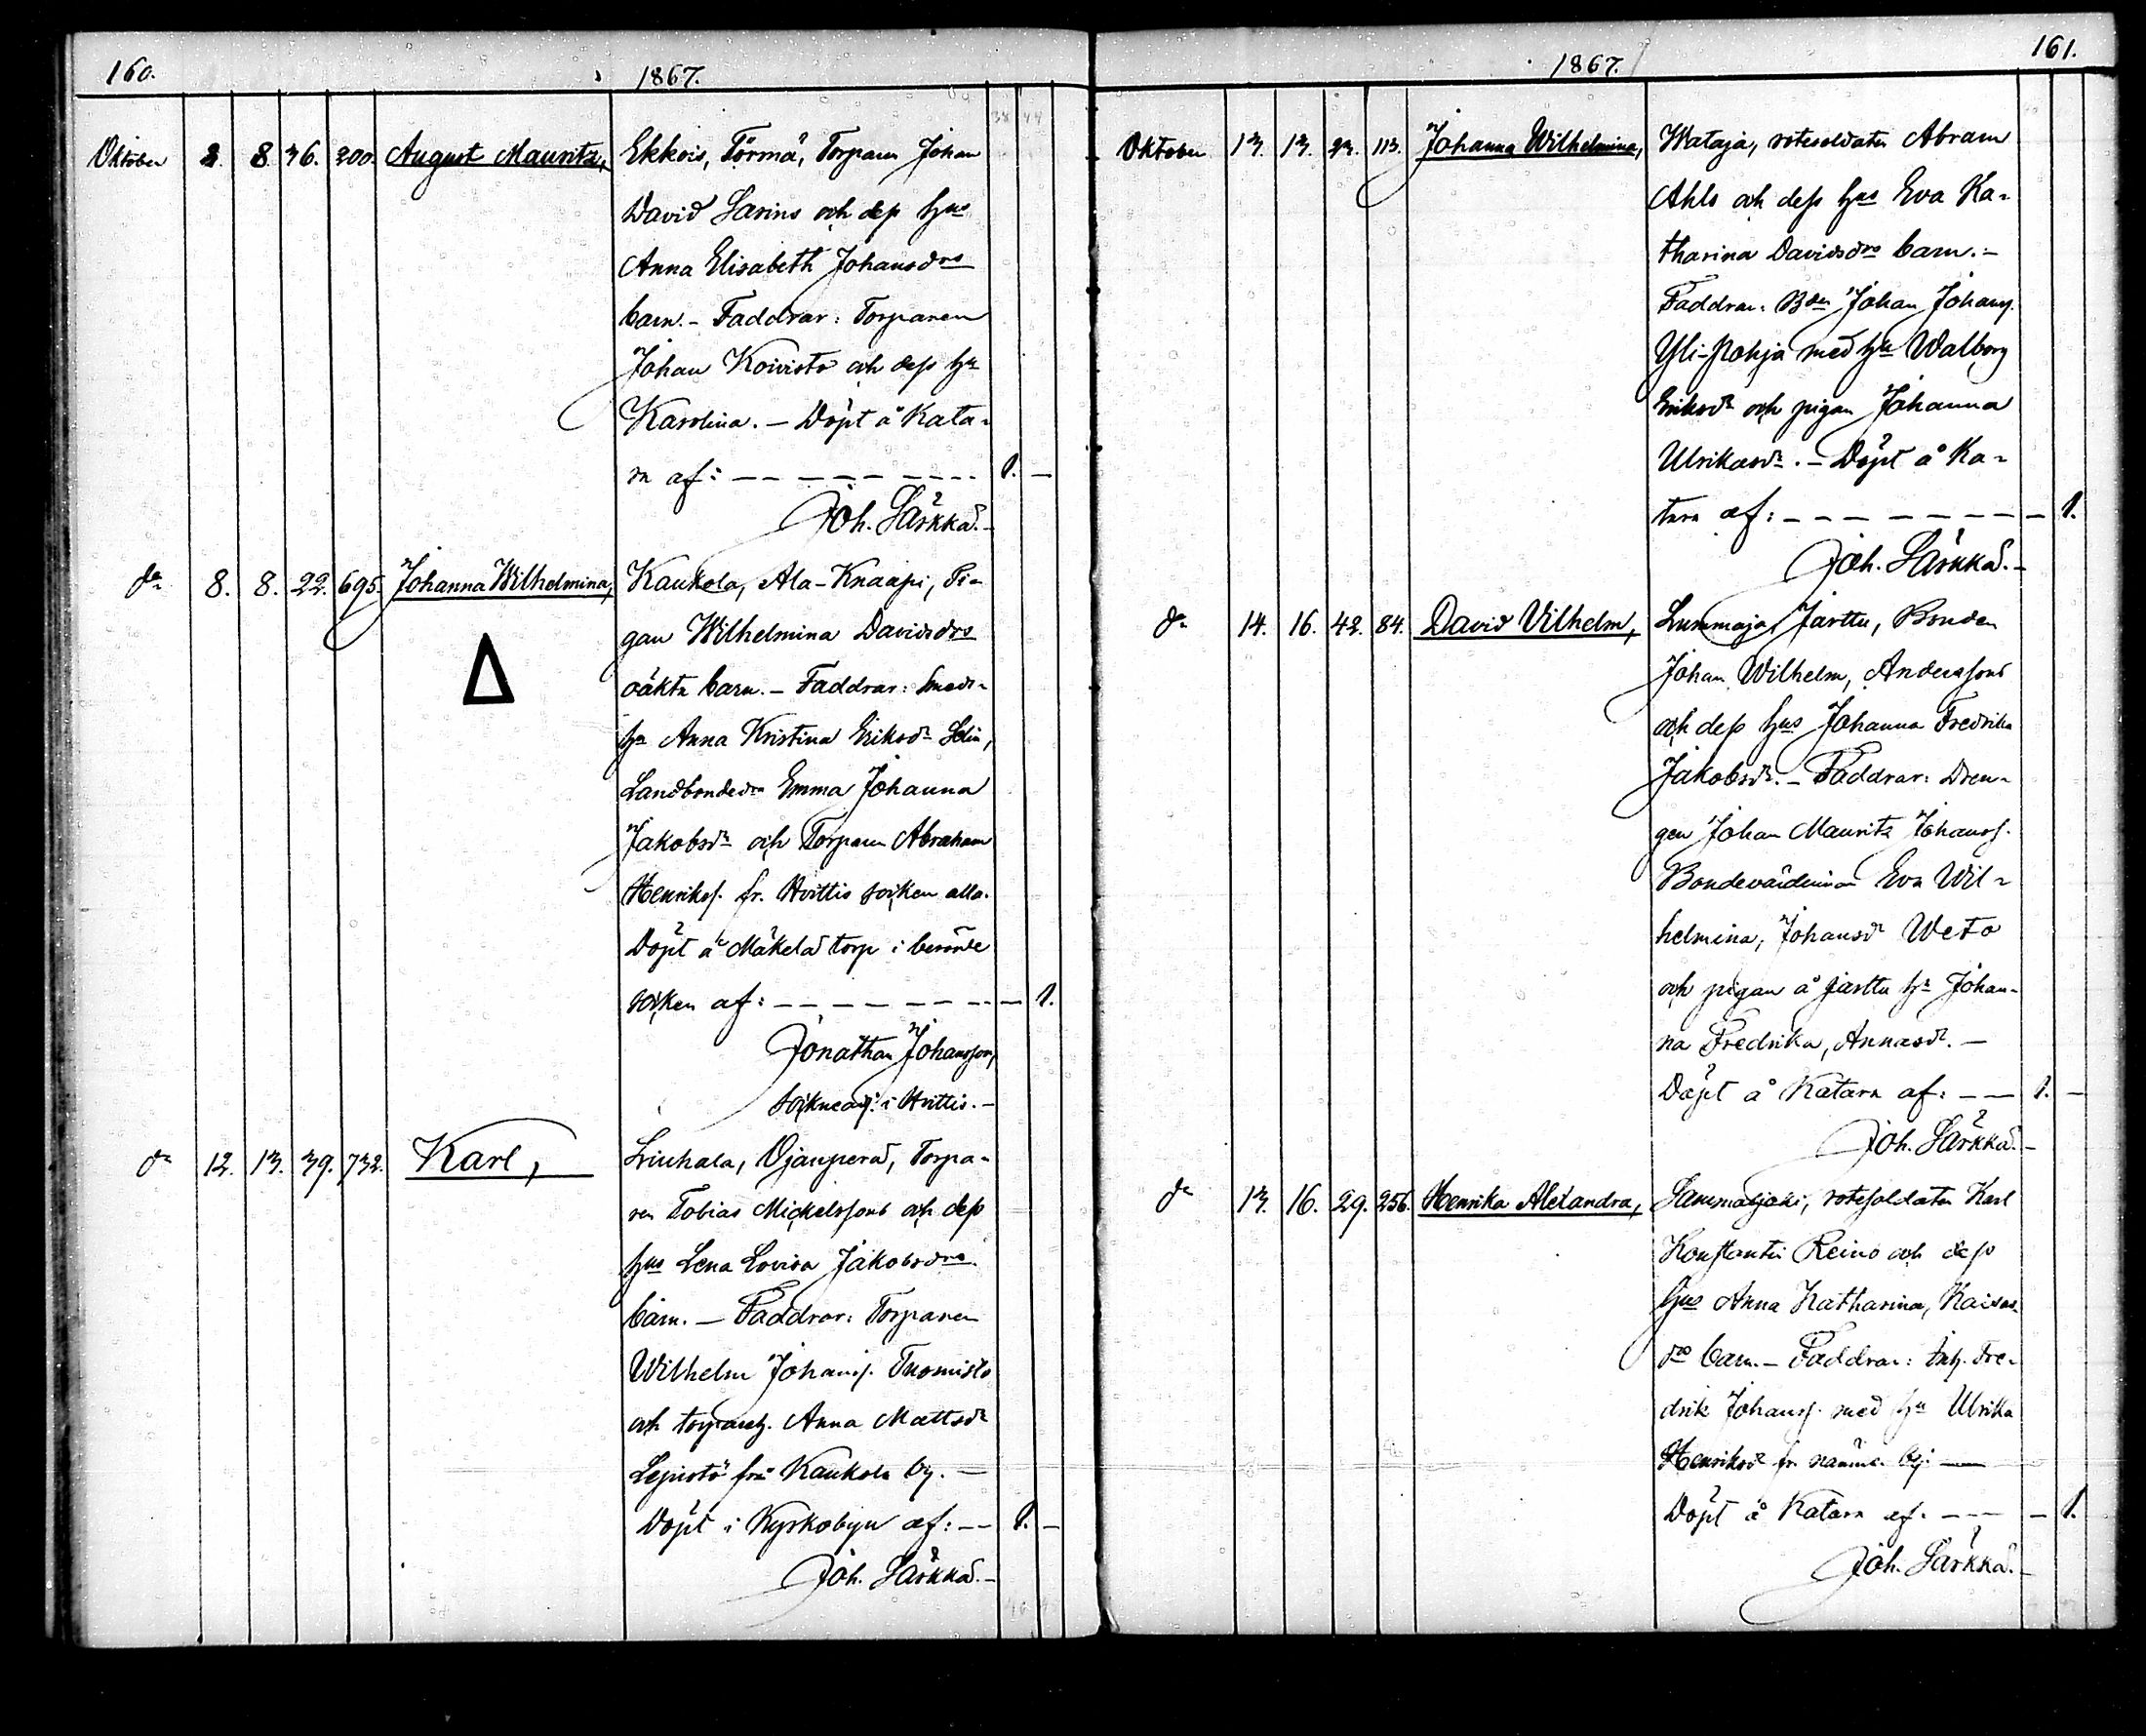 160. 1867.
Oktober 8. 8. 36. 200. August Mauritz, Ekkois, Törmä, Torparen Johan
David Larins och dess hus
Anna Elisabeth Johansdrs
barn. – Faddrar: Torparen
Johan Koivisto och dess hu
Karolina. – Döpt å Kata-
ra af: – – – – – – – 1. –
Joh. Särkkä. –
do 8. 8. 22. 695. Johanna Wilhelmina, Kaukola, Ala-Knaapi, Pi-
gan Wilhelmina Davidsdrs
oäkta barn. – Faddrar: Smeds-
hu Anna Kristina Eriksdr Selin,
Landbondedrn Emma Johanna
Jakobsdr och Torparen Abraham
Henrikss. fr. Hvittis socken alla.
Döpt å Mäkelä torp i berörde
socken af: – – – – – – – – 1.
Jonathan Johansson,
sockneadj. i Hvittis. –
do 12. 13. 39. 732. Karl, Liuhala, Ojanperä, Torpa-
ren Tobias Mickelssons och dess
hus Lena Lovisa Jakobsdrs
barn. – Faddrar: Torparen
Wilhelm Johanss. Tuomisto
och torpareh. Anna Mattsdr
Lepistö från Kaukola by. –
Döpt i Kyrkobyn af: – – 1. –
Joh. Särkkä. –
1867. 161.
Oktober 13. 13. 23. 113. Johanna Wilhelmina, Wataja, rotesoldaten Abram
Ahls och dess hus Eva Ka-
tharina Davidsdrs barn. –
Faddrar: Bden Johan Johanss.
Yli-Pohja med hu Walborg
Eriksdr och pigan Johanna
Ulrikasdr. – Döpt å Ka-
tara af: – – – – – – – – 1.
Joh. Särkkä. –
do 14. 16. 42. 84. David Vilhelm, Lummaja, Jarttu, Bonden
Johan Wilhelm, Anderssons
och dess hus Johanna Fredrika
Jakobsdr. – Faddrar: Dren-
gen Johan Mauritz Johanss.
Bondevärdinnan Eva Wil-
helmina, Johansdr Weto
och pigan å Jarttu hn Johan-
na Fredrika, Annasdr. –
Döpt å Katara af: – – 1. –
Joh. Särkkä. –
do 13. 16. 29. 256. Henrika Alexandra, Sammaljoki, rotesoldaten Karl
Konstantin Reino och dess
hus Anna Katharina, Kaisas
drs barn. – Faddrar: Inh. Fre-
drik Johanss. med hu Ulrika
Henriksdr fr. nämnde by. –
Döpt å Katara af. – – – – 1.
Joh. Särkkä. –